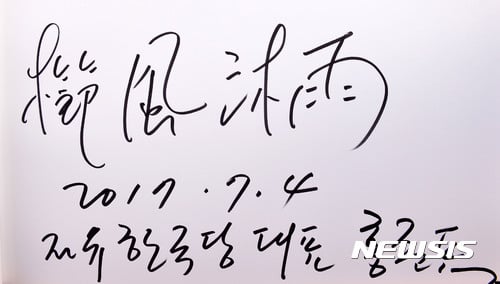 櫛風沐雨
2017. 7. 4
자유한국당 대표 홍준표
NEWSIS